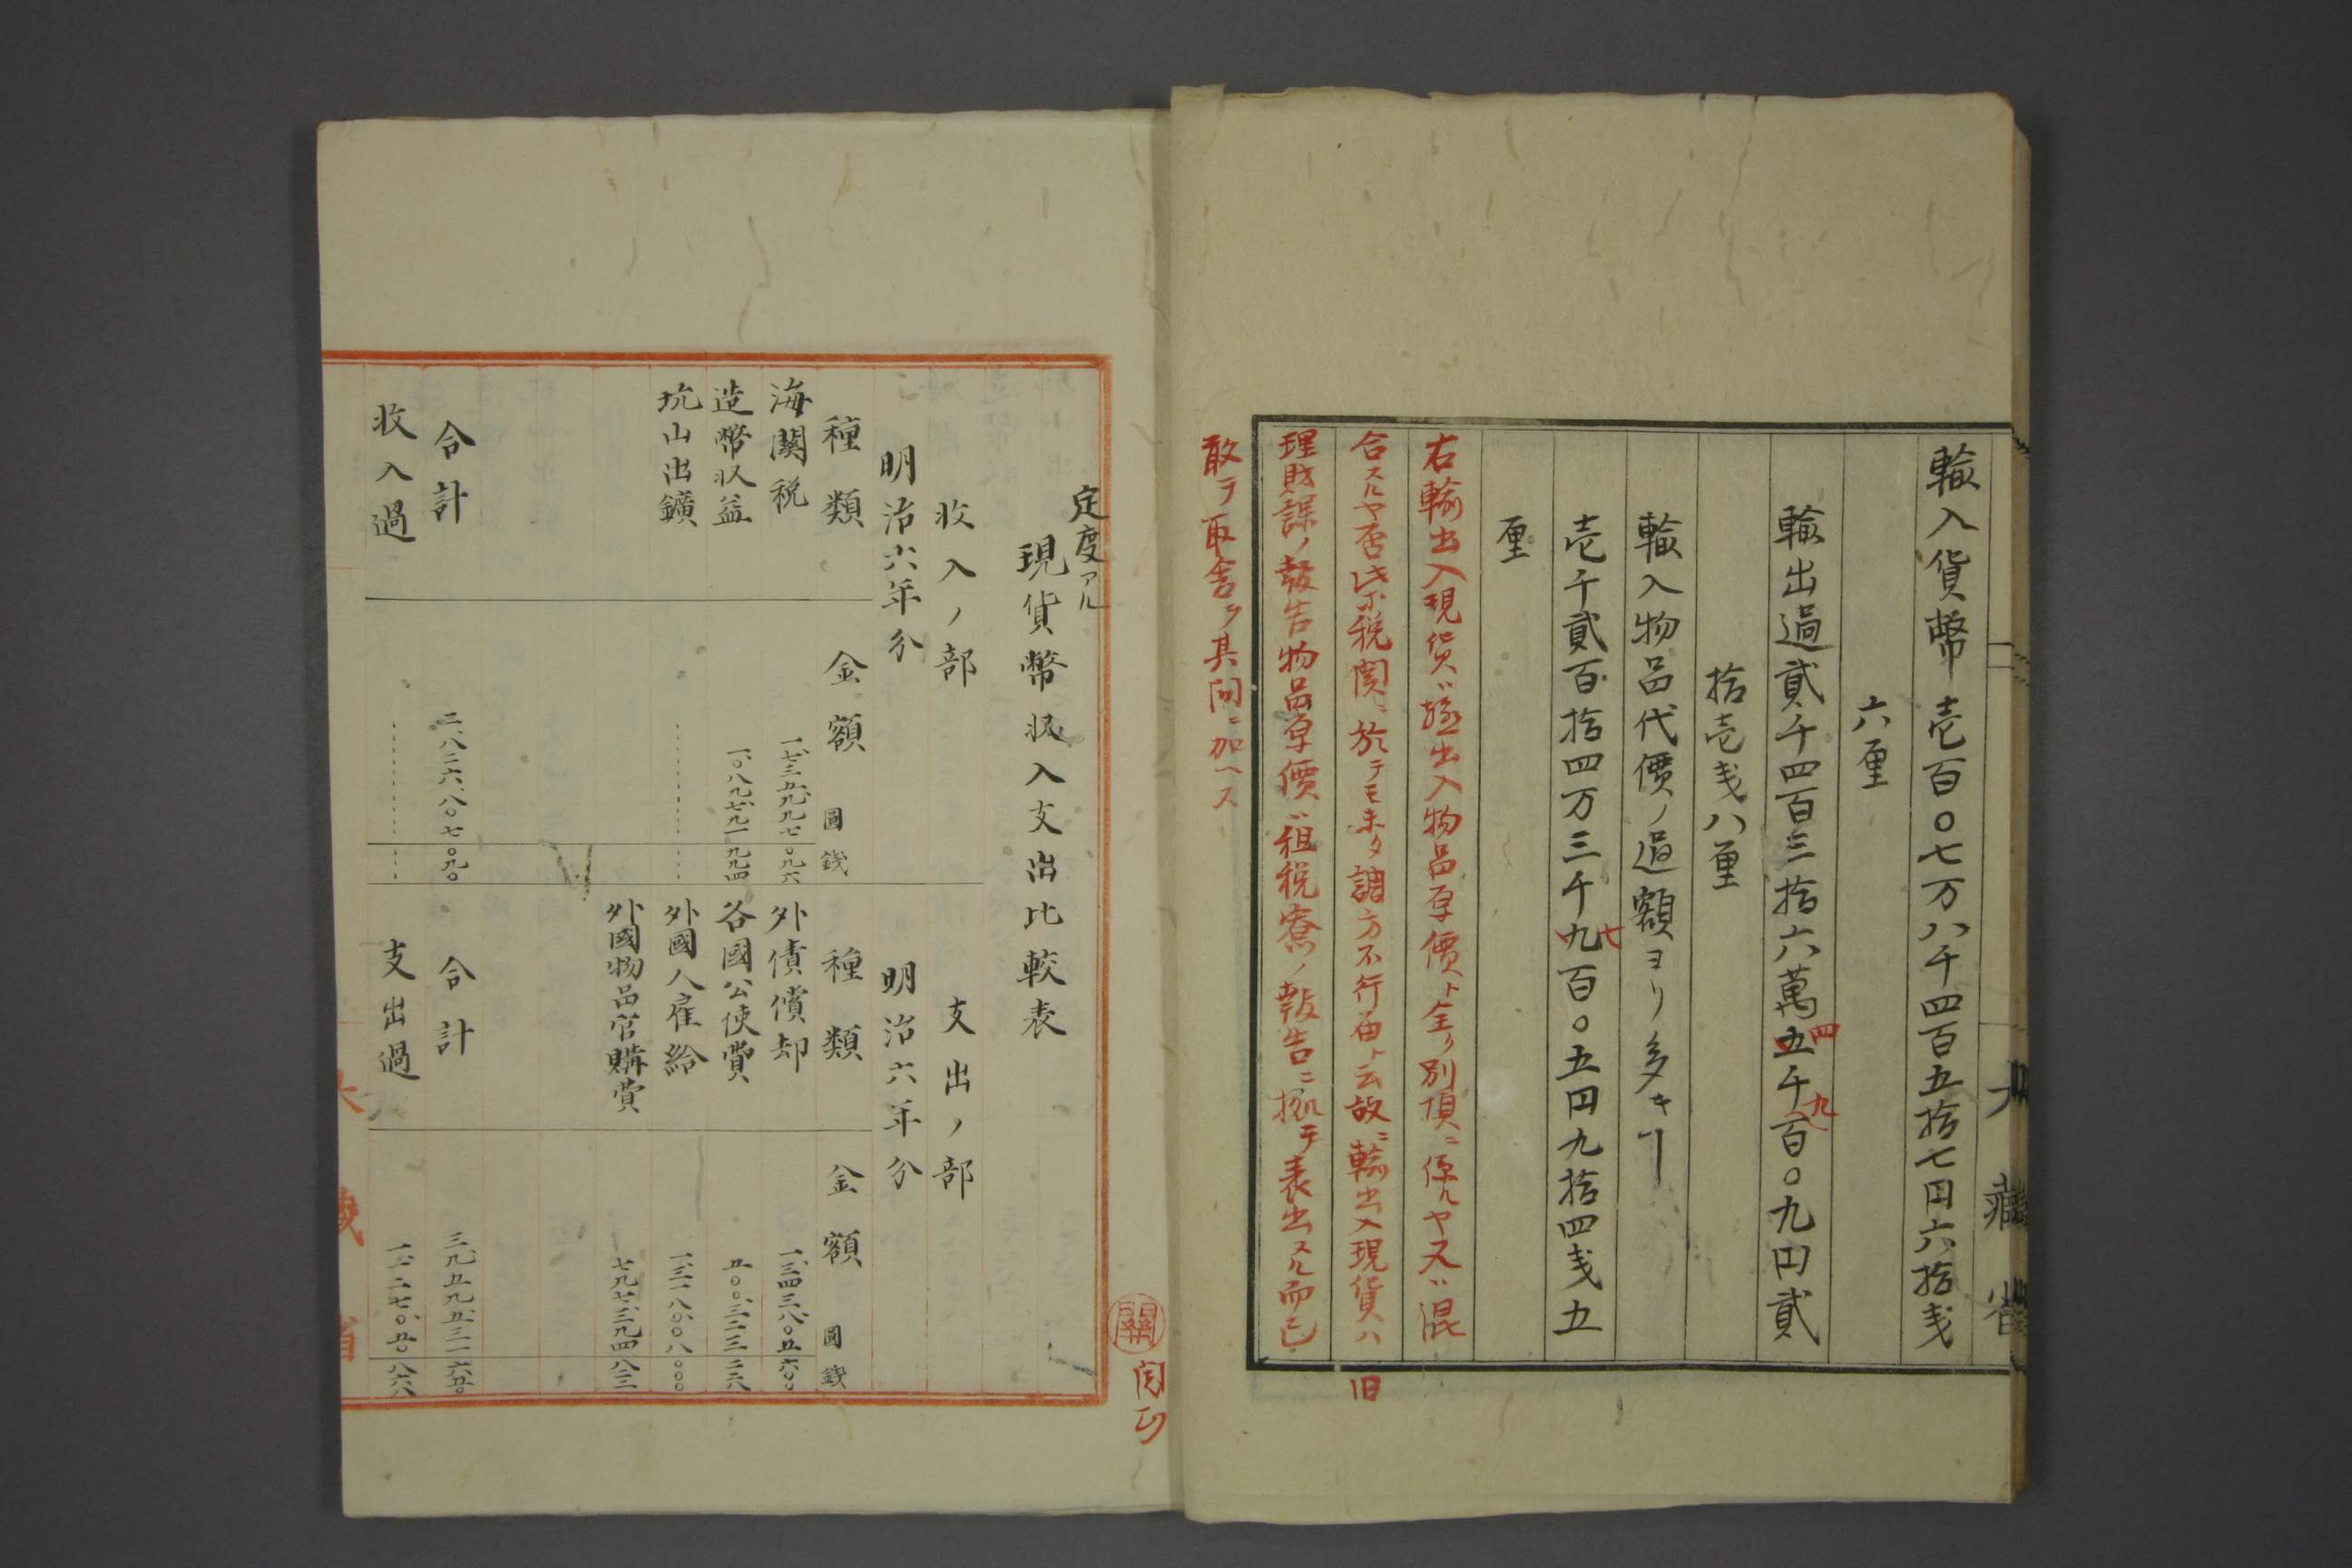 輸入貨幣壱百〇七万八千四百五拾七円六拾戔
六厘
輸出過貳千四百三拾六萬五千百〇九円貳
四
九
拾壱戔八厘
輸入物品代價ノ過額ヨリ多キヿ
壱千貳百拾四万三千九百〇五円九拾四戔五
七
厘
右輸出入現貨ハ輸出入物品原價ト全ク別項ニ係ルヤ又ハ混
合スルヤ否此亦税関ニ於テモ未タ調方不行届ト云故ニ輸出入現貨ハ
旧
理財課ノ報告物品原價ハ租税寮ノ報告ニ拠テ表出スル而已
敢テ取舎ヲ其间ニ加ヘス
大藏省
定度アル
現貨幣収入支出比較表
收入ノ部
支出ノ部
明治六年分
明治六年分
種類 金額 圓 錢
種類 金額 圓 錢
海關税 一、七三五、九九七 〇九六
外債償却 一、三四三、八〇五 六〇〇
造幣収益 一、〇八九、七九一 九九四
各國公使費 五〇〇、三三三 二六
坑山出鑛
外國人雇給 一、三一八、〇〇八 〇〇〇
外國物品官購賞 七九七、三九四 八三
合計 二、八二六、八〇七 〇九〇
合計 三、九五九、五三一 六五〇
收入過
支出過 一、一二七〇、五〇 八六八
大藏省